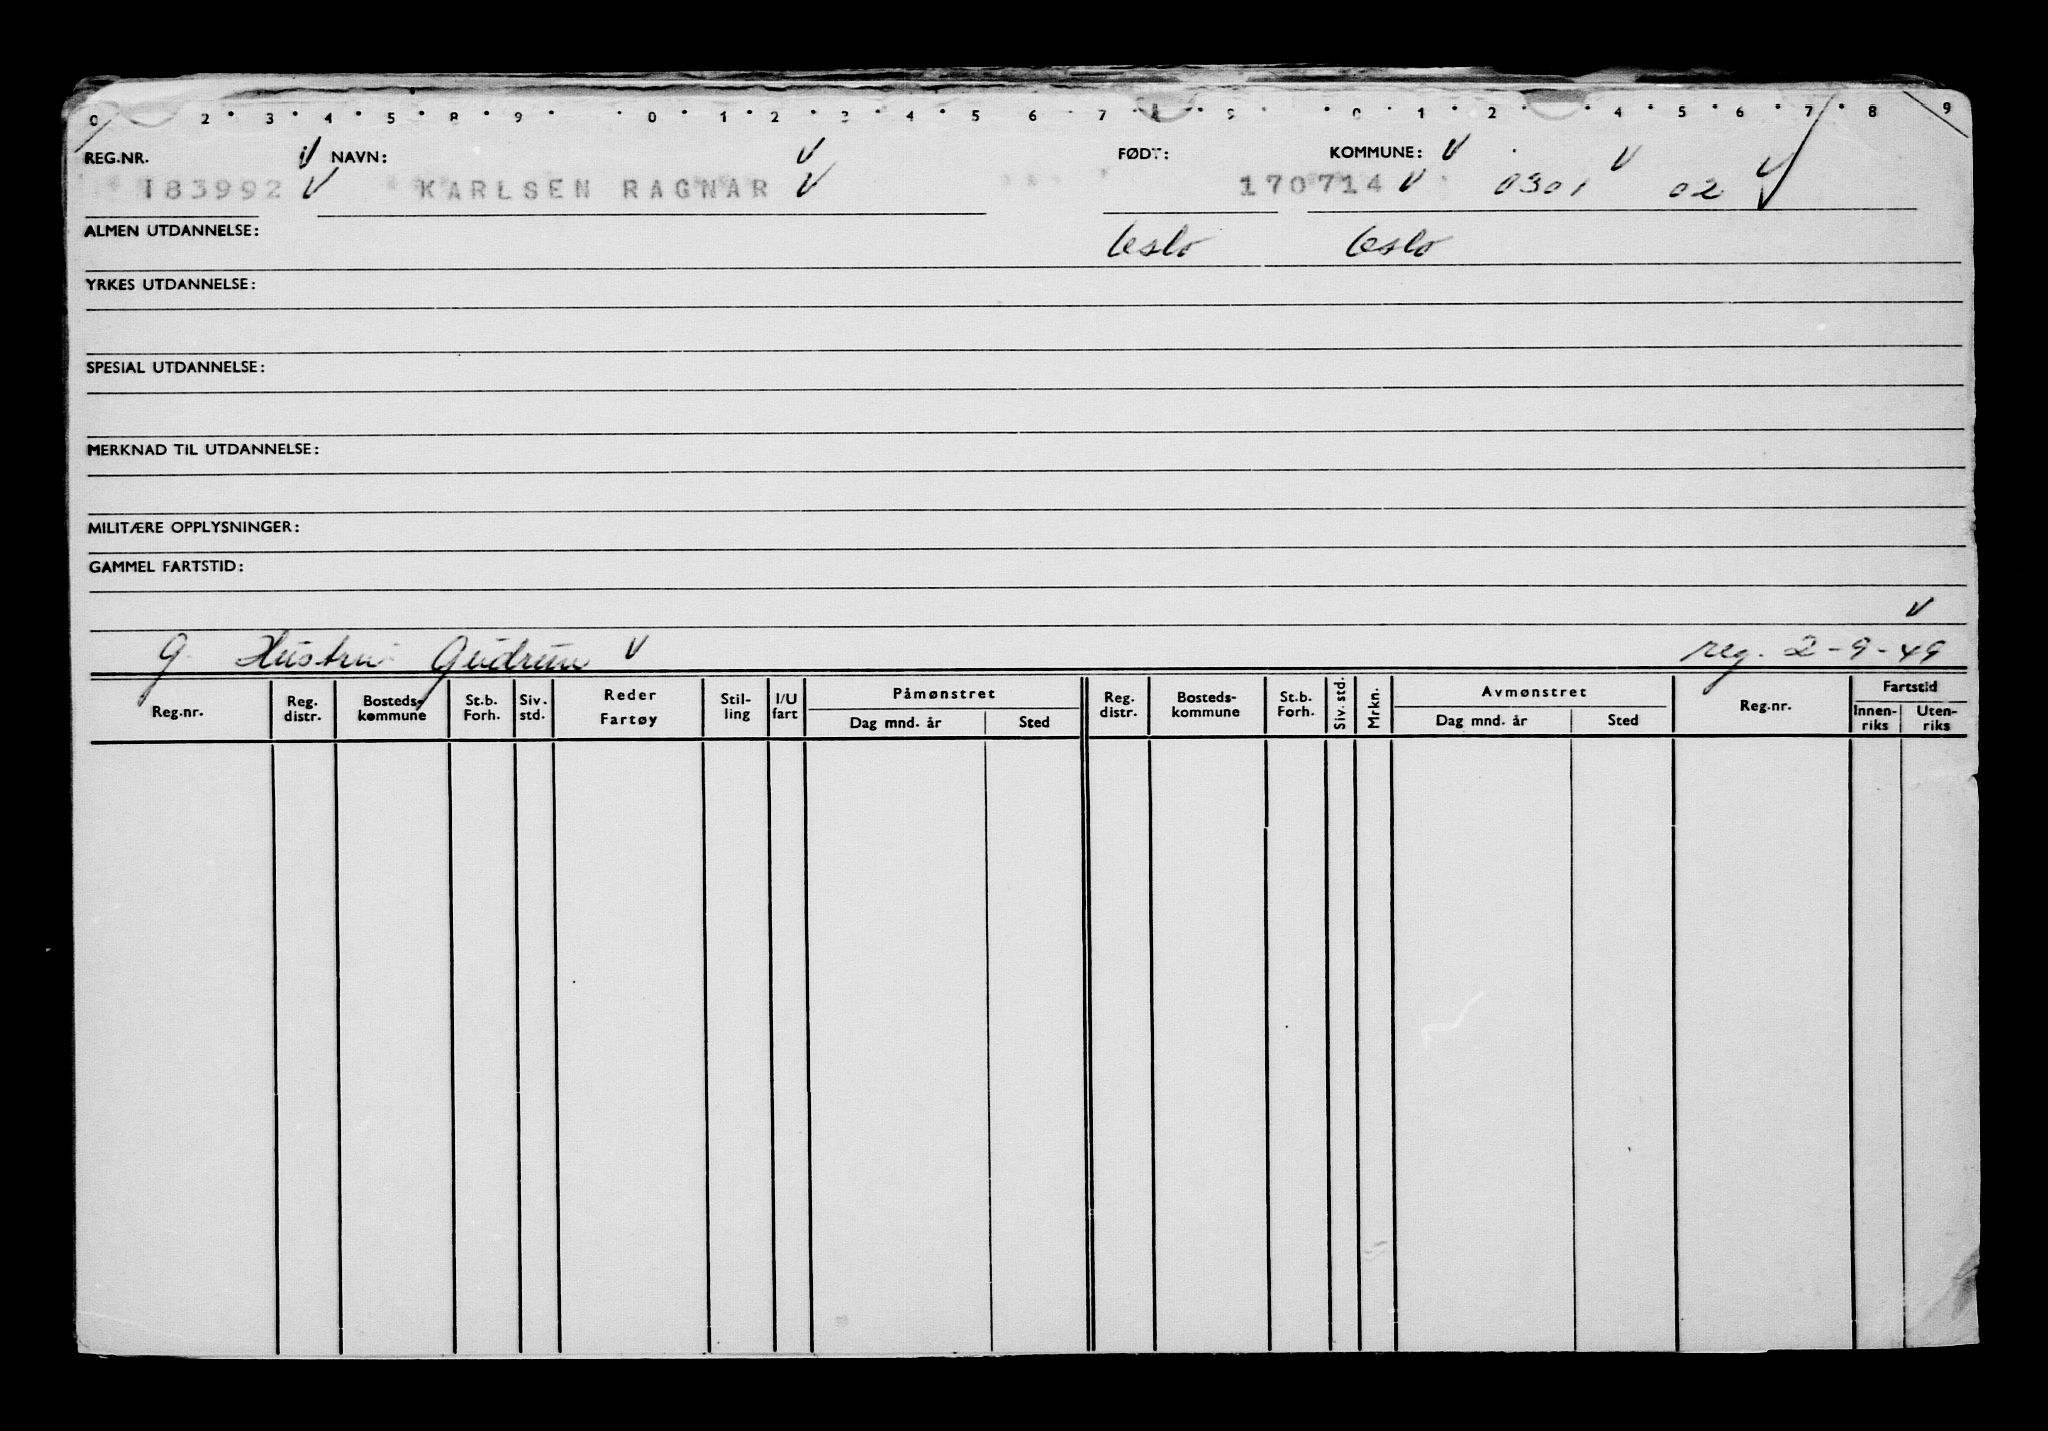 0 2 3 4 5 8 9 0 1 2 3 4 5 6 7 8 9 0 1 2 4 5 6 7 8 9
REG.NR. V NAVN: V FØDT: KOMMUNE: V V
183992 V KARLSEN RAGNAR V 170714 V 0301 02 V
ALMEN UTDANNELSE: Oslo Oslo
YRKES UTDANNELSE:
SPESIAL UTDANNELSE:
MERKNAD TIL UTDANNELSE:
MILITÆRE OPPLYSNINGER:
GAMMEL FARTSTID:
V
g. Hustru Gudrun V reg. 2-9-49
Reg.nr. Reg. distr. Bosteds-kommune St.b. Forh. Siv. std. Reder Fartøy Stil-ling I/U fart Påmønstret Dag mnd. år Sted Reg. distr. Bosteds-kommune St.b. Forh. Siv. std. Mrkn. Avmønstret Dag mnd. år Sted Reg.nr. Fartstid Innen-riks Uten-riks